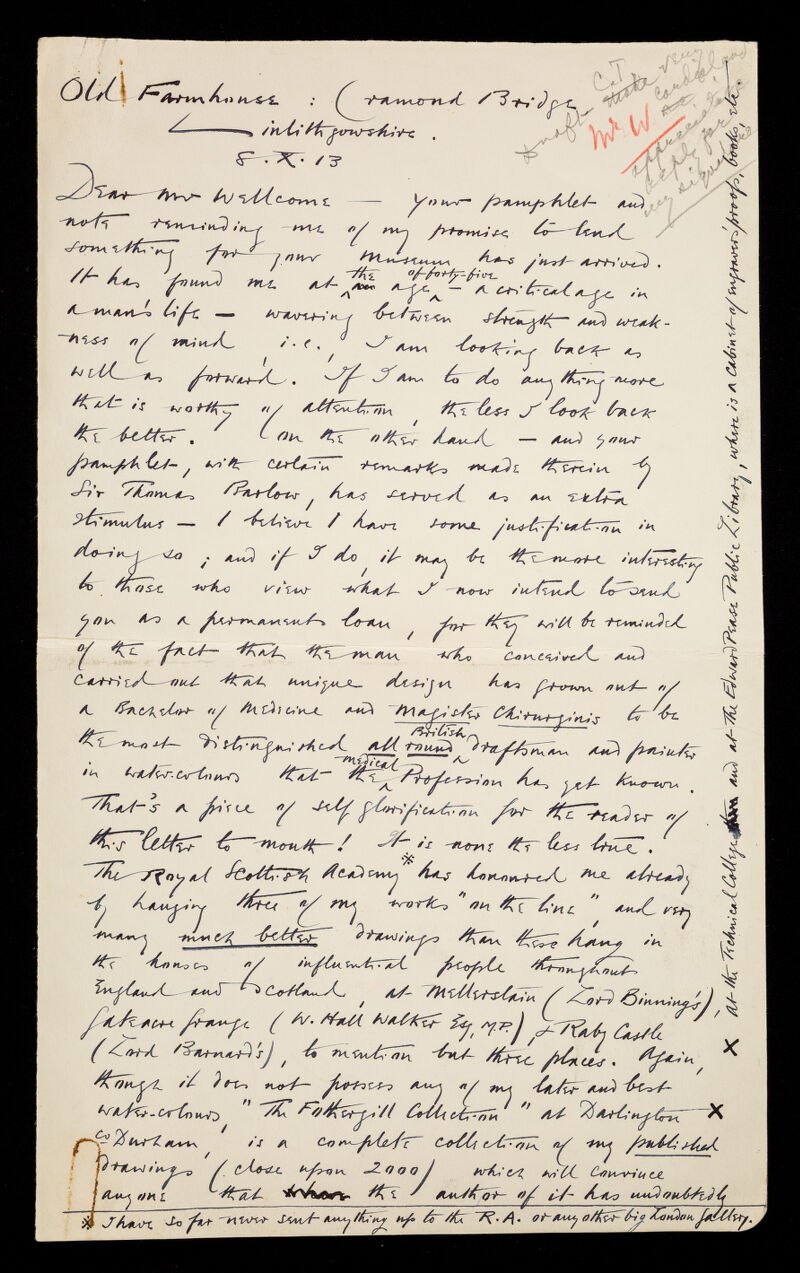 Old Farmhouse : Cramond Bridge
Linlithgowshire .
8. X. 13
C.T
draft
very
cordial and
Mr. W.
appreciative
reply for
my signature
Dear Mr Wellcome — your pamphlet and
note reminding me of my promise to lend
something for your museum has just arrived.
It has found me at the age of forty-five – a critical age in
a man's life – wavering between strength and weak-
ness of mind, i.e., I am looking back as
well as forward. If I am to do anything more
that is worthy of attention, the less I look back
the better. On the other hand – and your
pamphlet, with certain remarks made therein by
Sir Thomas Barlow, has served as an extra
stimulus – I believe I have some justification in
doing so ; and if I do, it may be the more interesting
to those who view what I now intend to send
you as a permanent loan, for they will be reminded
of the fact that the man who conceived and
carried out that unique design has grown out of
a Bachelor of Medicine and Magister Chirurginis to be
the most distinguished all round British draftsman and painter
in water-colours that the medical Profession has yet known.
That's a piece of self glorification for the reader of
this letter to mouth! It is none the less true.
The Royal Scottish Academy※ has honoured me already
by hanging three of my works "on the line", and very
many much better drawings than these hang in
the houses of influential people throughout
England and Scotland, at Mellerstain (Lord Binning's),
Gateacre Grange (W. Hall Walker Esq, M.P.), & Raby Castle
(Lord Barnard's), to mention but three places. Again,
though it does not possess any of my later and best
water-colours, "The Fothergill Collection" at Darlington X
co Durham, is a complete collection of my published
drawings (close upon 2000) which will convince
anyone that the author of it has undoubtedly
※ I have so far never sent anything up to the R.A. or any other big London Gallery.
X at the Technical College and at the Edward Pease Public Library, where is a cabinet of engraver's proofs, books, etc.